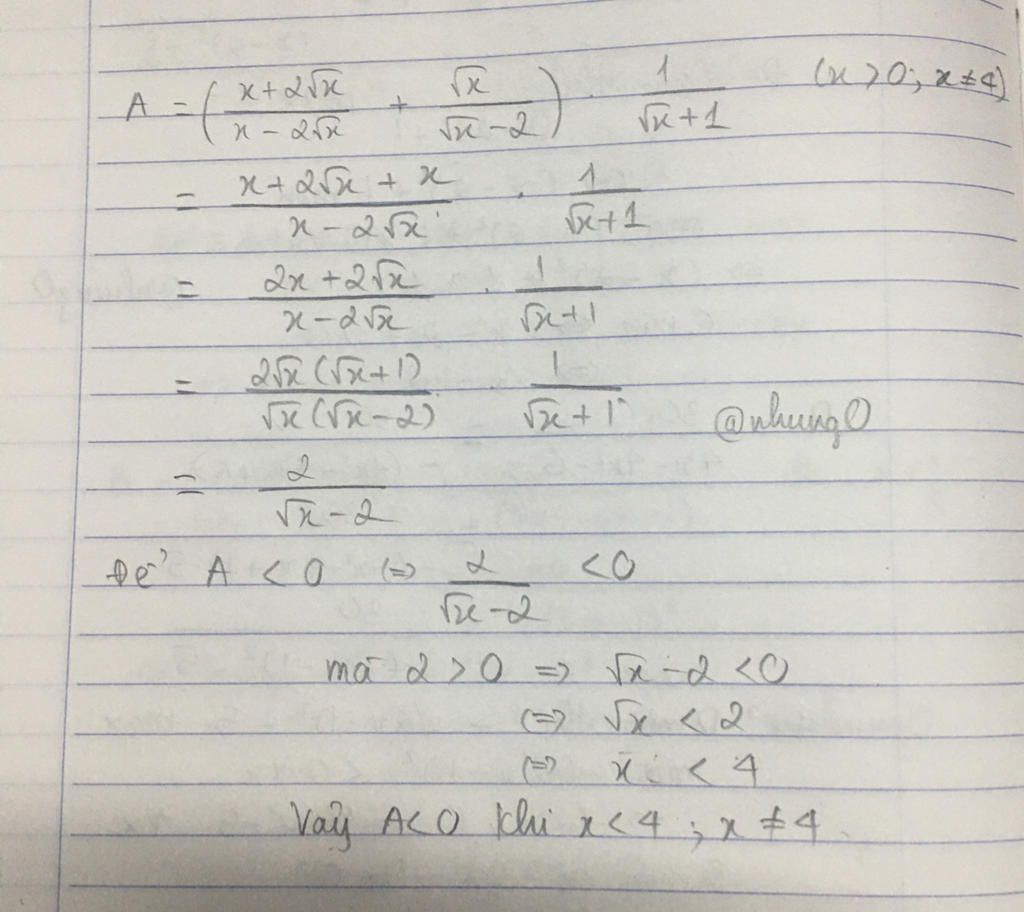 A = (x+2√x / x-2√x + √x / √x-2) . 1 / √x+1 (x>0; x≠4)
= x+2√x+x / x-2√x . 1 / √x+1
= 2x+2√x / x-2√x . 1 / √x+1
= 2√x(√x+1) / √x(√x-2) . 1 / √x+1
@nhung0
= 2 / √x-2
Để A < 0 (=) 2 / √x-2 < 0
mà 2 > 0 => √x-2 < 0
(=> √x < 2
(=> x < 4
Vậy A<0 khi x<4 ; x≠4.